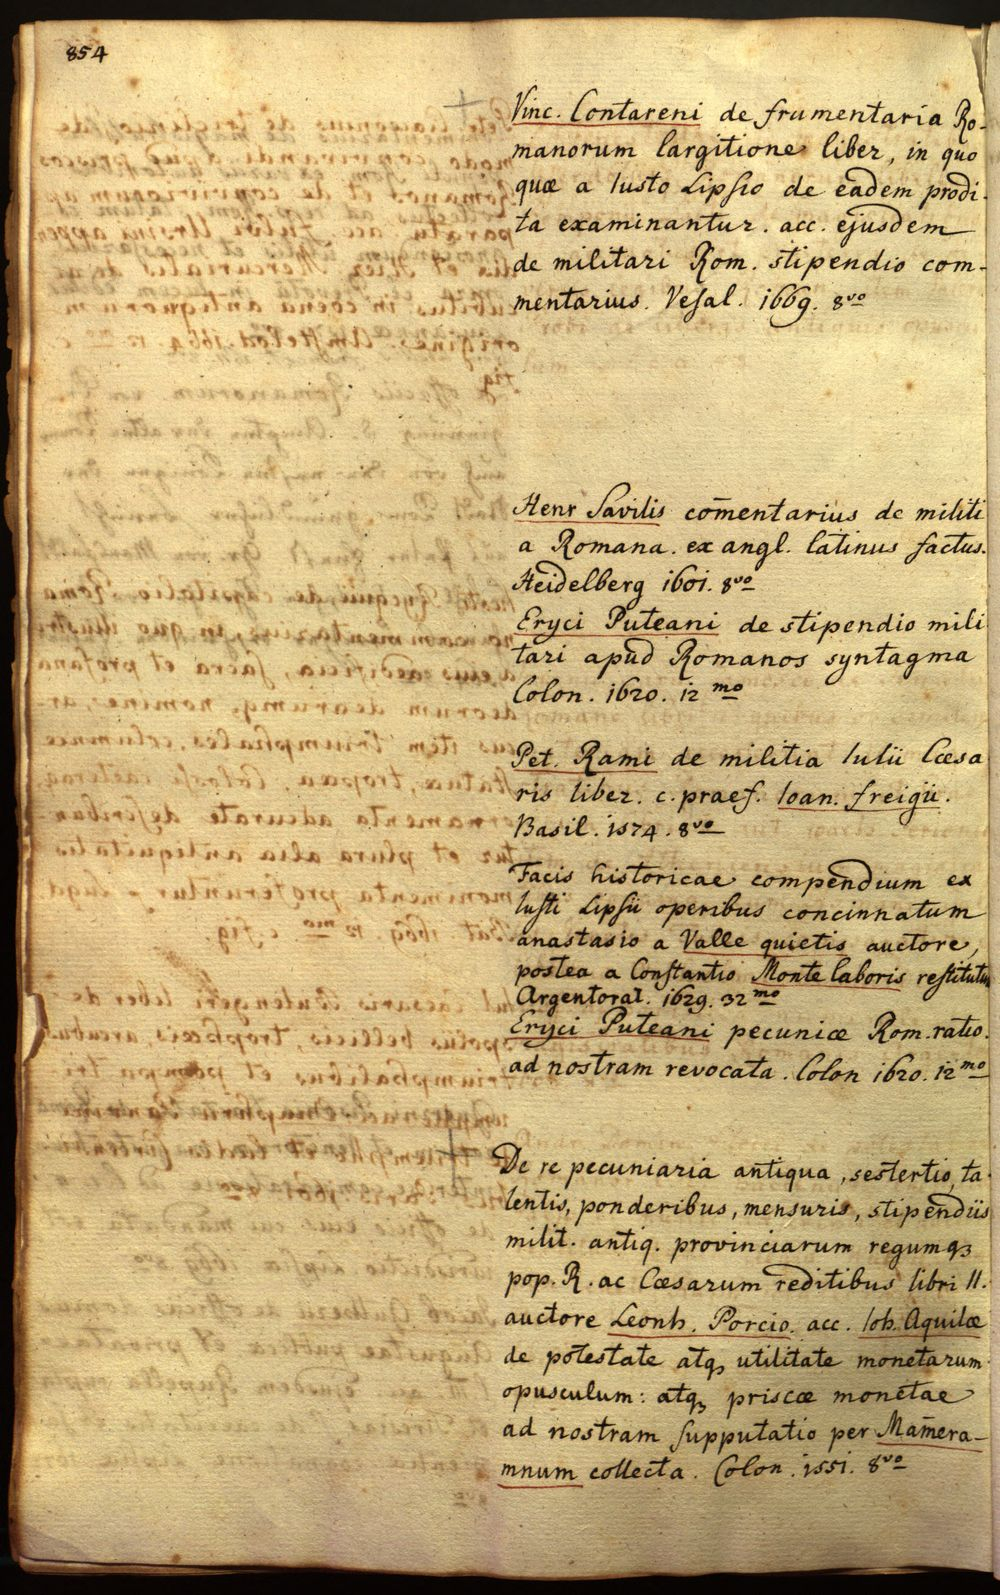 854
Vinc. Contareni de frumentaria Ro-
manorum largitione liber, in quo
quæ a Iusto Lipsio de eadem prodi-
ta examinantur. acc. ejusdem
de militari Rom. stipendio com-
mentarius. Vesal. 1669. 8vo
Henr Savilis com̄entarius de militi
a Romana. ex angl. latinus factus.
Heidelberg 1601. 8vo
Eryci Puteani de stipendio mili
tari apud Romanos syntagma
Colon. 1620. 12mo
Pet. Rami de militia Iulii Cæsa
ris liber. c. praef. Ioan. freigii.
Basil. 1574. 8vo
Facis historicae compendium ex
Iusti Lipsii operibus concinnatum
anastasio a Valle quietis auctore,
postea a Constantio Monte laboris restitutum
Argentorat. 1629. 32mo
Eryci Puteani pecuniæ Rom. ratio.
ad nostram revocata. Colon 1620. 12mo
De re pecuniaria antiqua, sestertio, ta-
lentis, ponderibus, mensuris, stipendiis
milit. antiq. provinciarum regumqꝫ
pop. R. ac Cæsarum reditibus libri II.
auctore Leonh. Porcio. acc. Ioh. Aquilæ
de potestate atqꝫ utilitate monetarum
opusculum: atqꝫ priscæ monetae
ad nostram supputatio per Mam̄era-
mnum collecta. Colon. 1551. 8vo